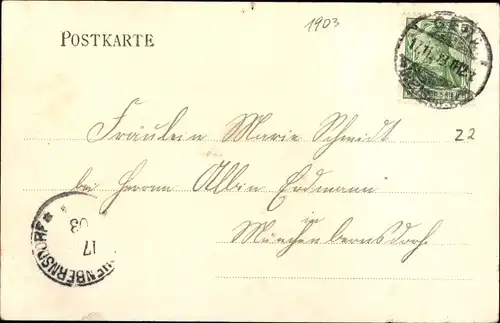 1903
POSTKARTE
17.11.03
22
Fräulein Marie Schmidt
bei Herrn Albin Erdmann
in
Münchenbernsdorf.
03
17
HENBERNSDORF